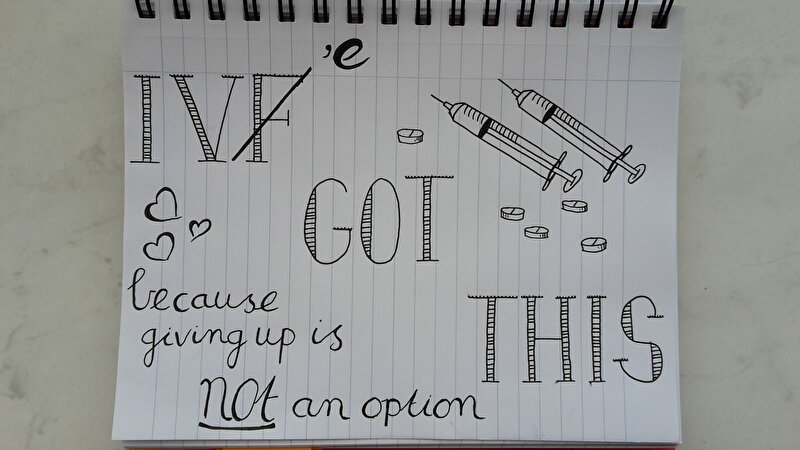 'e
IVF
GOT
THIS
because
giving up is
not an option